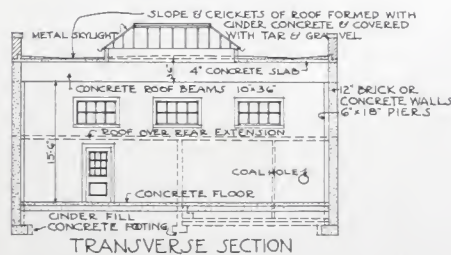 SLOPE & CRICKETS OF ROOF FORMED WITH
CINDER CONCRETE & COVERED
WITH TAR & GRAVEL
METAL SKYLIGHT
4" CONCRETE SLAB
CONCRETE ROOF BEAMS 10"X36"
12" BRICK OR
CONCRETE WALLS
6"X18" PIERS
ROOF OVER REAR EXTENSION
15'-6"
COAL HOLE
CONCRETE FLOOR
CINDER FILL
CONCRETE FOOTING
TRANSVERSE SECTION